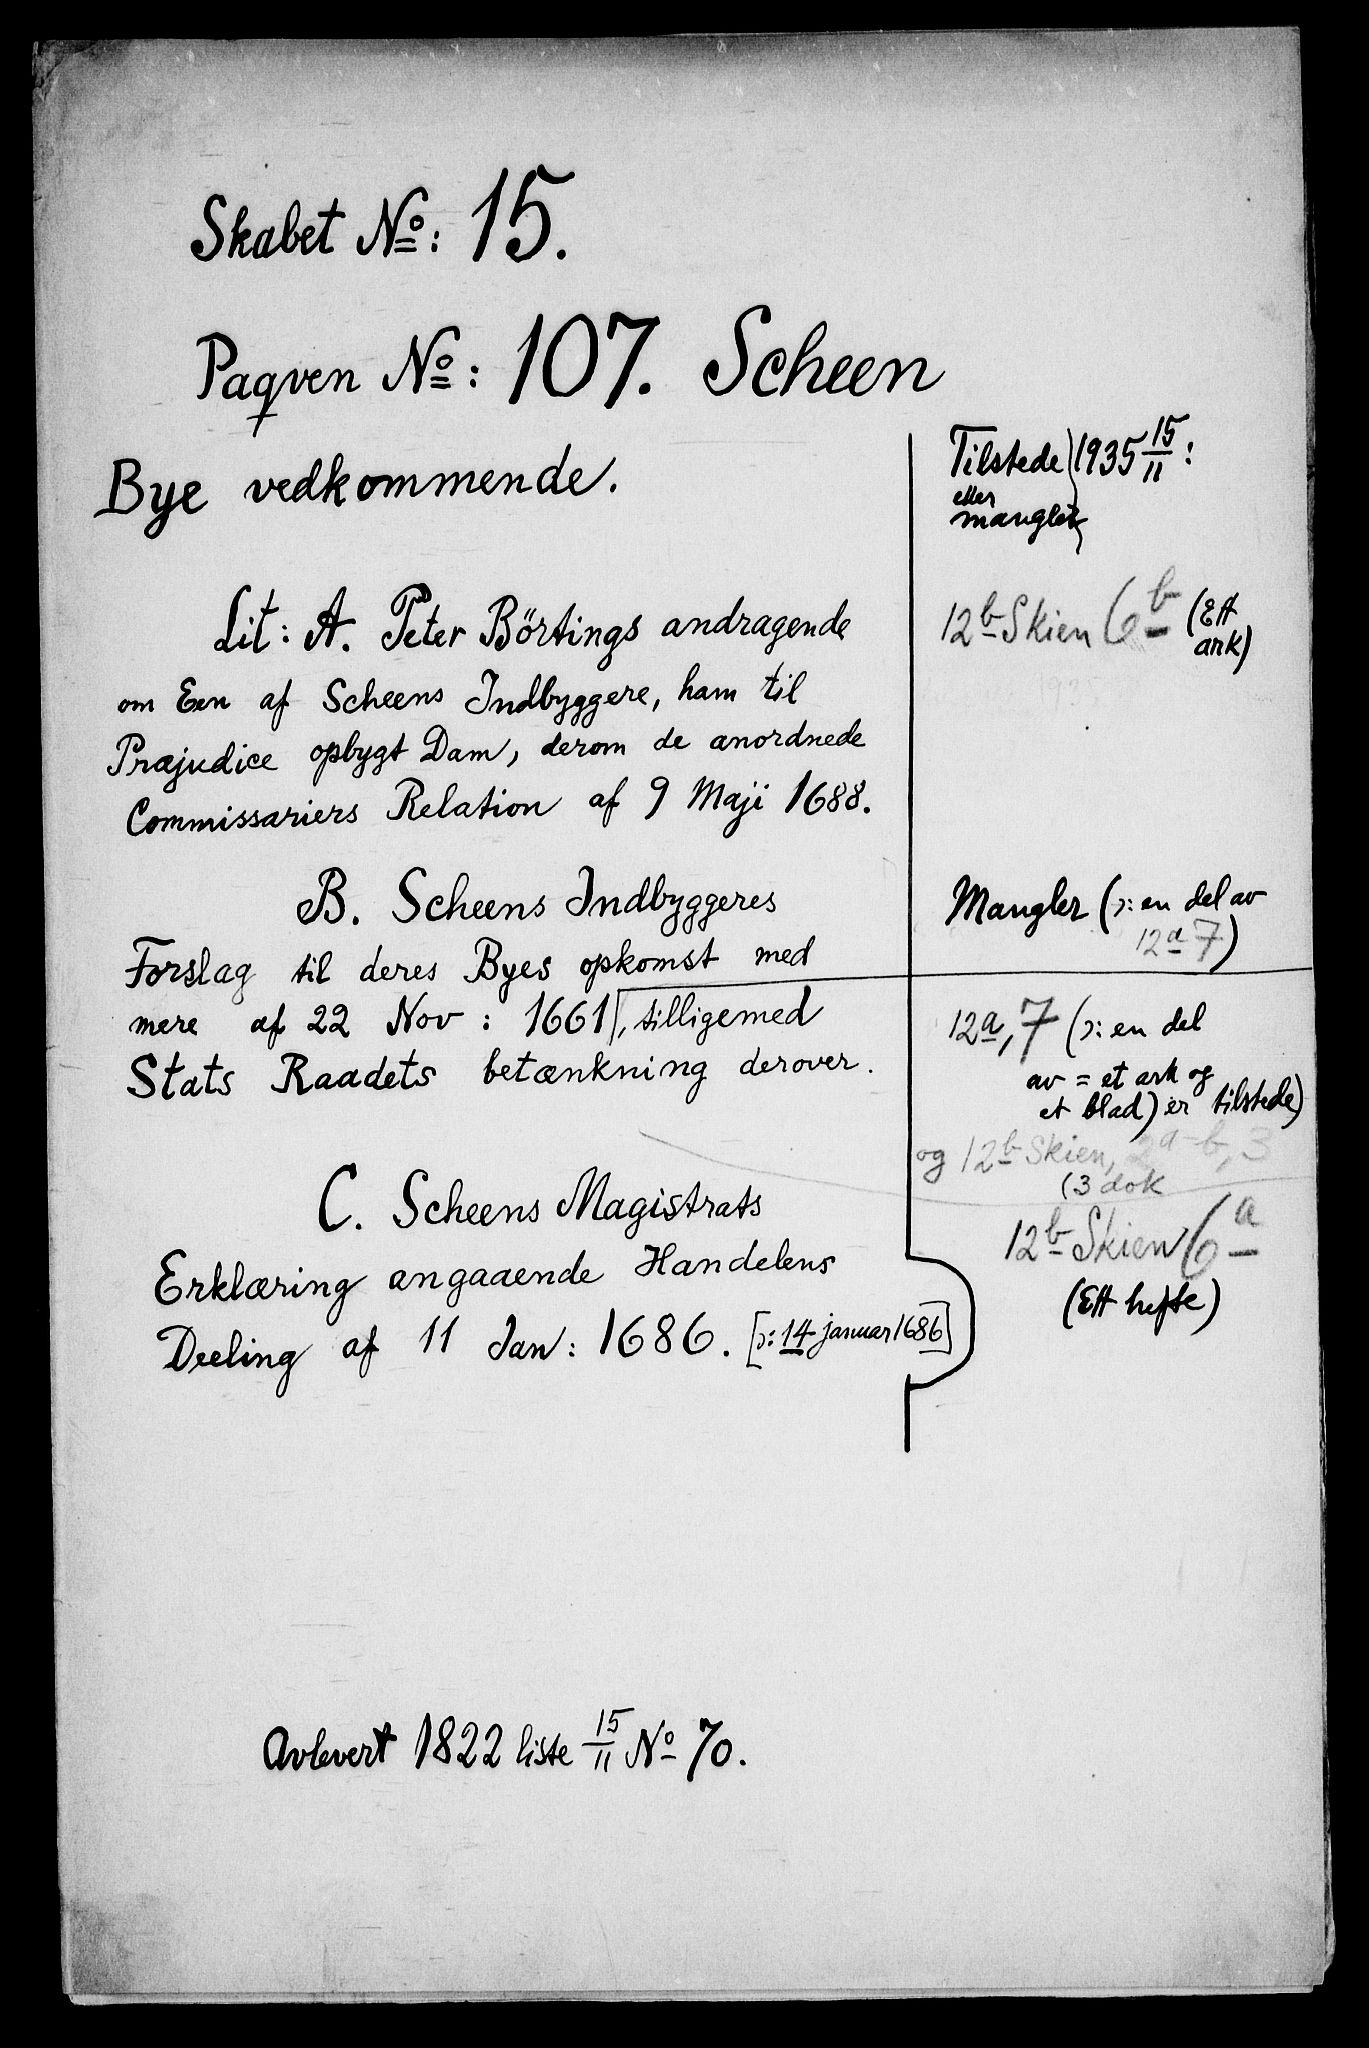 Skabet No: 15.
Paqven No: 107. Scheen
Bye vedkommende.
Tilstede } 1935 15/11:
eller
mangler
Lit: A. Peter Börtings andragende
om Een af Scheens Indbyggere, ham til
Præjudice opbygt Dam, derom de anordnede
Commissariers Relation af 9 Maji 1688.
12b Skien 6b (Ett
ark)
B. Scheens Indbyggeres
Forslag til deres Byes opkomst med
mere af 22 Nov: 1661, tilligemed
Stats Raadets betænkning derover.
Mangler (ɔ: en del av
12a 7)
12a, 7 (ɔ: en del
av = et ark og
et blad) er tilstede)
og 12b Skien, 2a-b, 3
(3 dok
C. Scheens Magistrats
Erklæring angaaende Handelens
Deeling af 11 Jan: 1686. [ɔ: 14 januar 1686]
12b Skien 6a
(Ett hefte)
Avlevert 1822 liste 15/11 No 70.